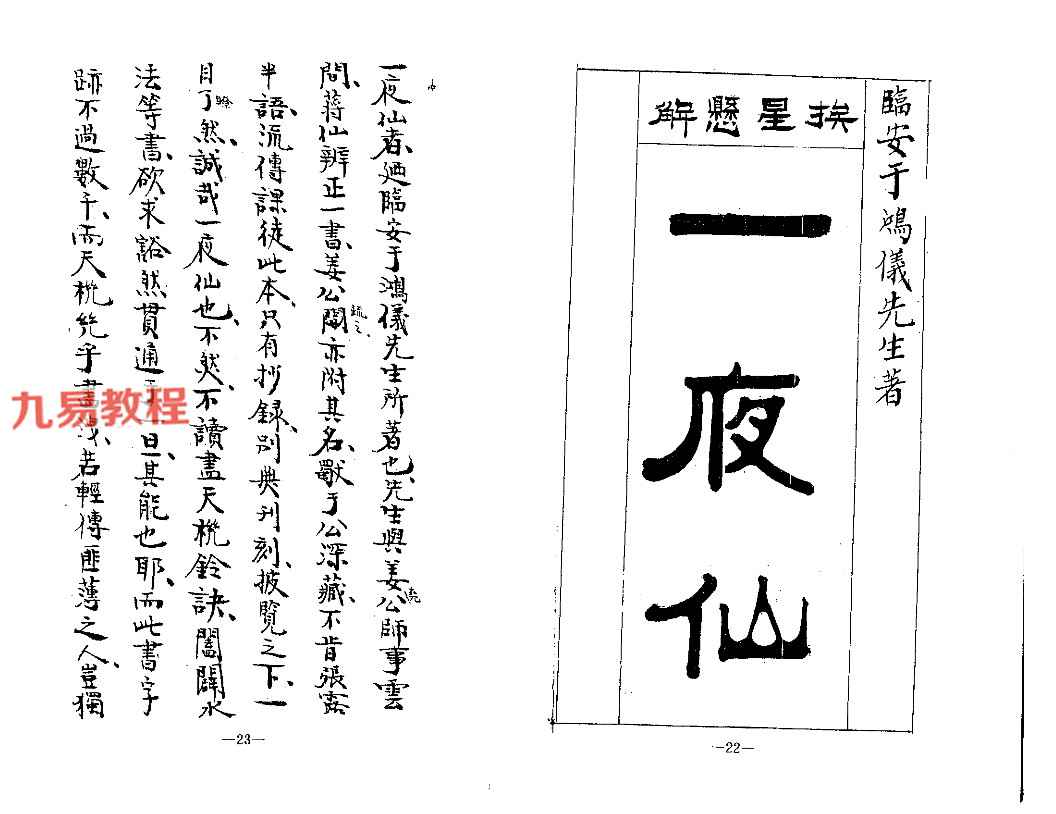 臨安于鴻儀先生著
挨星懸解
一夜仙
—22—
一夜仙者、廼臨安于鴻儀先生所著也、先生與姜公師事雲
間、蔣仙辨正一書、姜公闡亦附其名、獸于公深藏、不肯張露
疏之
半語、流傳課徒此本、只有抄錄、別無刊刻、披覧之下、一
目了然、誠哉一夜仙也、不然、不讀盡天機鈴訣、闔闢水
法等書、欲求谿然貫通 一旦、其能也耶、而此書字
跡不過數千、而天機 乎盡 、若輕傳匪薄之人、豈獨
—23—
九易教程